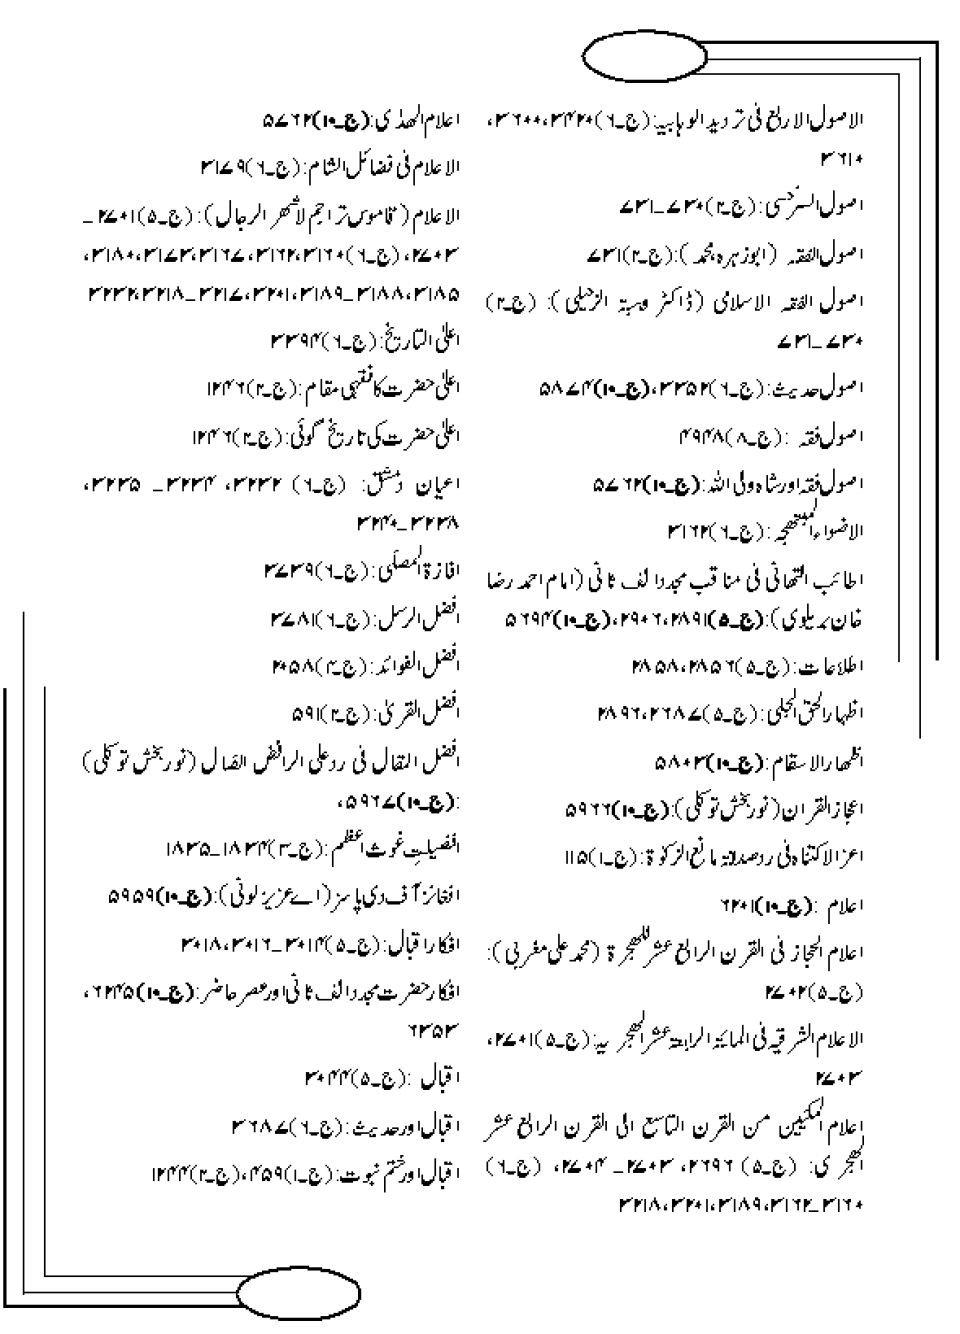 الاصول الاربع فی تردید الوہابیہ:(ج۔۶)۳۴۲۰،۳۶۰۰،
۳۶۱۰
اصول السرخسی:(ج۔۲)۷۳۰۔۷۳۱
اصول الفقہ (ابوزہرہ،محمد):(ج۔۲)۷۳۱
اصول الفقہ الاسلامی (ڈاکٹر وہبۃ الزحیلی): (ج۔۲)
۷۳۰۔۷۳۱
اصول حدیث:(ج۔۶)۳۳۵۲،(ج۔۱۰)۵۸۷۴
اصول فقہ :(ج۔۸)۴۹۴۸
اصول فقہ اورشاہ ولی اللہ:(ج۔۱۰)۵۷۶۲
الاضواء المبتھجہ:(ج۔۶)۳۱۶۲
اطائب التھانی فی مناقب مجددالف ثانی(امام احمد رضا
خان بریلوی):(ج۔۵)۲۸۹۱،۲۹۰۶،(ج۔۱۰)۵۶۹۴
اطلاعات:(ج۔۵)۲۸۵۶،۲۸۵۸
اظہارالحق الجلی:(ج۔۵)۲۶۸۷،۲۸۹۶
اظھارالاسقام:(ج۔۱۰)۵۸۰۳
اعجازالقران(نوربخش توکلی):(ج۔۱۰)۵۹۶۶
اعزالاکتناہ فی ردصدقۃ مانع الزکوۃ:(ج۔۱)۱۱۵
اعلام :(ج۔۱۰)۶۲۰۱
اعلام الحجاز فی القرن الرابع عشرللھجرۃ (محمدعلی مغربی):
(ج۔۵)۲۷۰۲
الاعلام الشرقیہ فی المائۃ الرابعۃ عشرالھجریہ:(ج۔۵)۲۷۰۱،
۲۷۰۳
اعلام المکیین من القرن التاسع الی القرن الرابع عشر
الھجری: (ج۔۵) ۲۶۹۶، ۲۷۰۳۔ ۲۷۰۴، (ج۔۶)
۳۱۶۰۔۳۱۶۲،۳۱۸۹،۳۲۰۱،۳۲۱۸
اعلام الھدٰی:(ج۔۱۰)۵۷۶۲
الاعلام فی فضائل الشام:(ج۔۶)۳۱۷۹
الاعلام (قاموس تراجم لاشھر الرجال):(ج۔۵)۲۷۰۱۔
۲۷۰۳،(ج۔۶)۳۱۶۰،۳۱۶۲،۳۱۶۷،۳۱۷۳،۳۱۸۰،
۳۱۸۵،۳۱۸۸۔۳۱۸۹،۳۲۰۱،۳۲۱۷۔۳۲۱۸،۳۲۳۲
اعلیٰ التاریخ:(ج۔۶)۳۳۹۴
اعلیٰ حضرت کافقہی مقام:(ج۔۲)۱۲۴۶
اعلیٰ حضرت کی تاریخ گوئی:(ج۔۲)۱۲۴۶
اعیان دمشق: (ج۔۶) ۳۲۳۲، ۳۲۳۴۔ ۳۲۳۵،
۳۲۳۸۔۳۲۴۰
افازۃ المصلی:(ج۔۶)۳۷۳۹
افضل الرسل:(ج۔۶)۳۷۸۱
افضل الفوائد:(ج۔۴)۲۰۵۸
افضل القریٰ:(ج۔۲)۵۹۱
افضل المقال فی ردعلی الرافض الضال (نوربخش توکلی)
:(ج۔۱۰)۵۹۶۷،
افضیلتِ غوث اعظم:(ج۔۳)۱۸۳۴۔۱۸۳۵
افغانزآف دی پاسز(اے عزیزلونی):(ج۔۱۰)۵۹۵۹
افکاراقبال:(ج۔۵)۳۰۱۴۔۳۰۱۶،۳۰۱۸
افکارحضرت مجددالف ثانی اورعصرحاضر:(ج۔۱۰)۶۲۴۵،
۶۳۵۳
اقبال :(ج۔۵)۳۰۴۴
اقبال اورحدیث:(ج۔۶)۳۶۸۷
اقبال اورختم نبوت:(ج۔۱)۴۵۹،(ج۔۲)۱۲۴۴